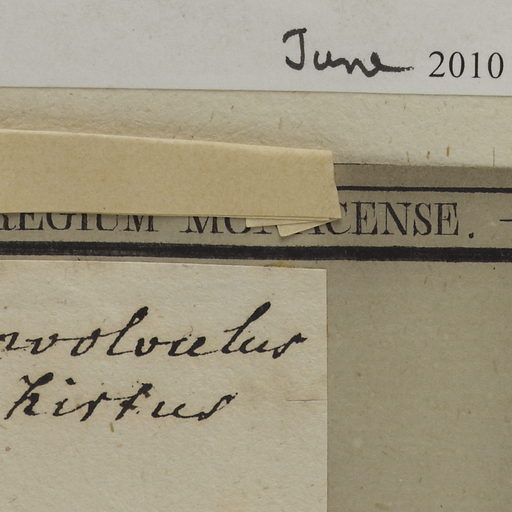 June 2010
REGIUM MONACENSE. -
nvolvulus
hirtus